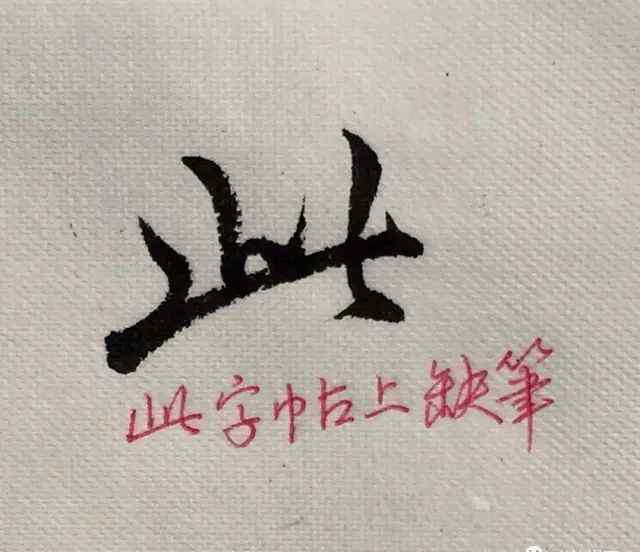 此
此字帖上缺筆